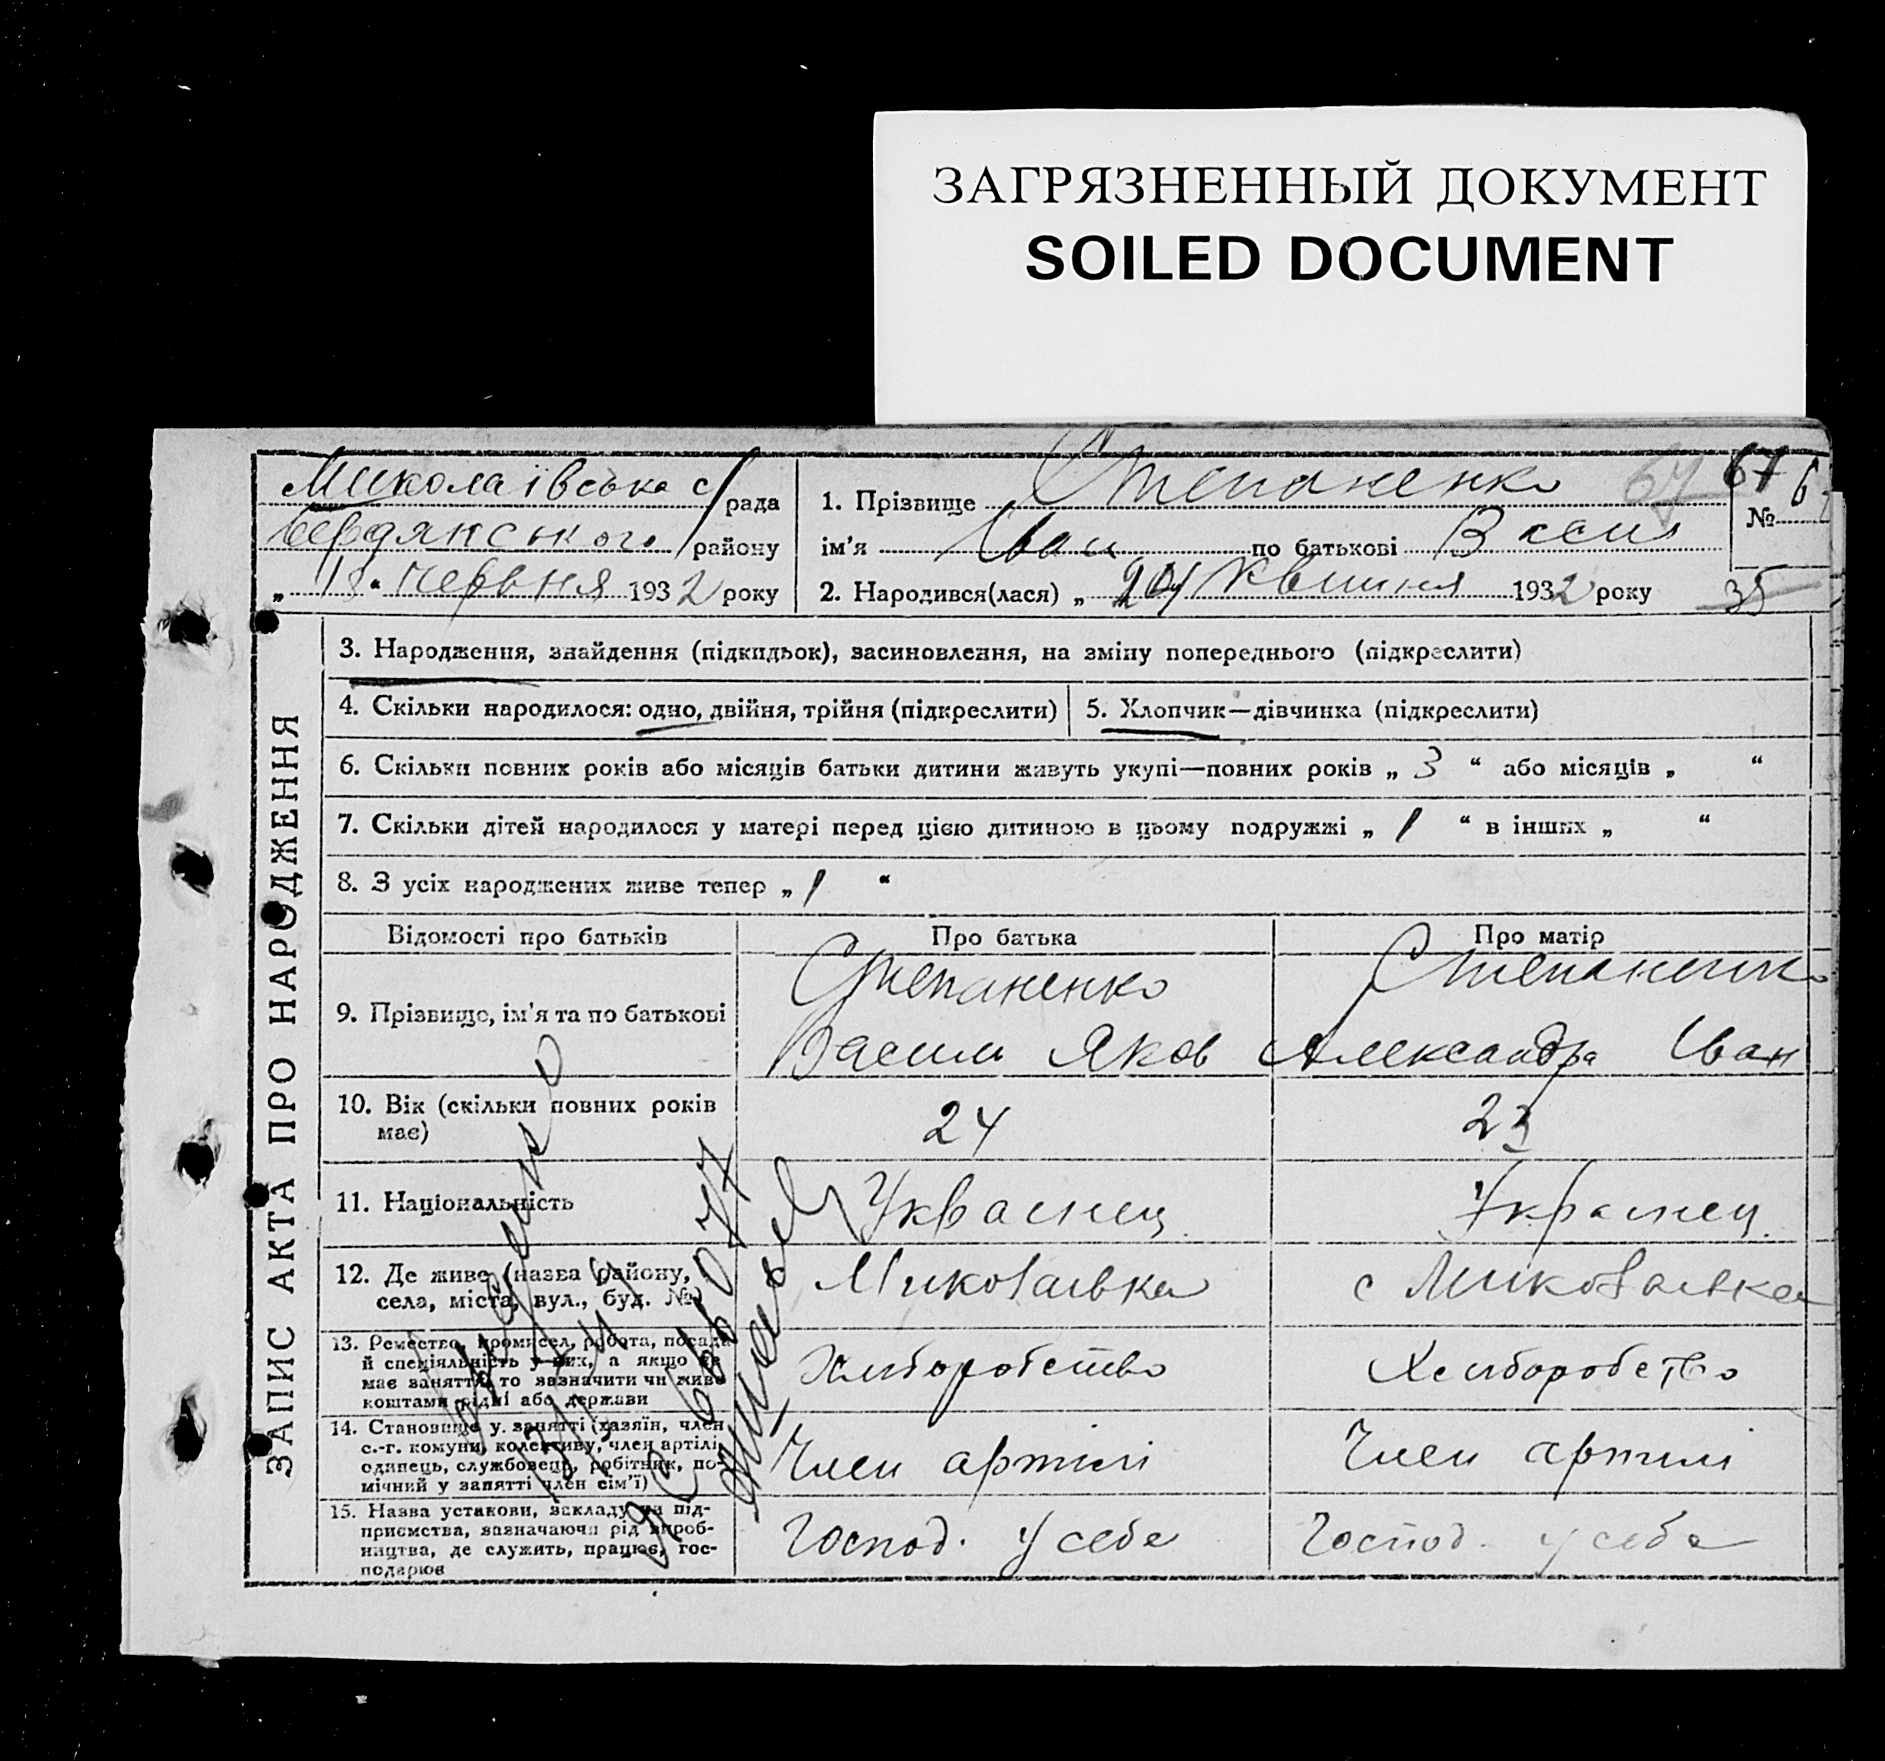 ЗАГРЯЗНЕННЫЙ ДОКУМЕНТ
SOILED DOCUMENT
Миколаївська с/рада
Бердянського району
„18“ червня 1932 року
1. Прізвище Степаненко
ім'я Иван по батькові Васил
2. Народився(лася) „24 квитня 1932 року
67 67
№ 67
35
ЗАПИС АКТА ПРО НАРОДЖЕННЯ
3. Народження, знайдення (підкидьок), засиновлення, на зміну попереднього (підкреслити)
4. Скільки народилося: одно, двійня, трійня (підкреслити) 5. Хлопчик—дівчинка (підкреслити)
6. Скільки повних років або місяців батьки дитини живуть укупі—повних років „ 3 “ або місяців „ “
7. Скільки дітей народилося у матері перед цією дитиною в цьому подружжі „ 1 “ в інших „ “
8. З усіх народжених живе тепер „ 1 “
Відомості про батьків Про батька Про матір
9. Прізвище, ім'я та по батькові
Степаненко Степаненко
Васили Яков Александра Иван
10. Вік (скільки повних років має) 24 23
11. Національність Украинец Украинец
12. Де живе (назва району,
села, міста, вул., буд. №
Николаивка с Миколаивка
13. Ремество, промисел, робота, посада
й спеціяльність у них, а якщо не
має заняття, то зазначити чи живе
коштами рідні або держави
Хлиборобство Хлиборобство
14. Становище у занятті (хазяїн, член
с.-г. комуни, колективу, член артілі,
одинець, службовець, робітник, по-
мічний у занятті член сім'ї)
Член артілі Член артилі
15. Назва установи, закладу чи під-
приємства, зазначаючи рід вироб-
ництва, де служить, працює, гос-
подарює
Господ. у себе Господ. у себе